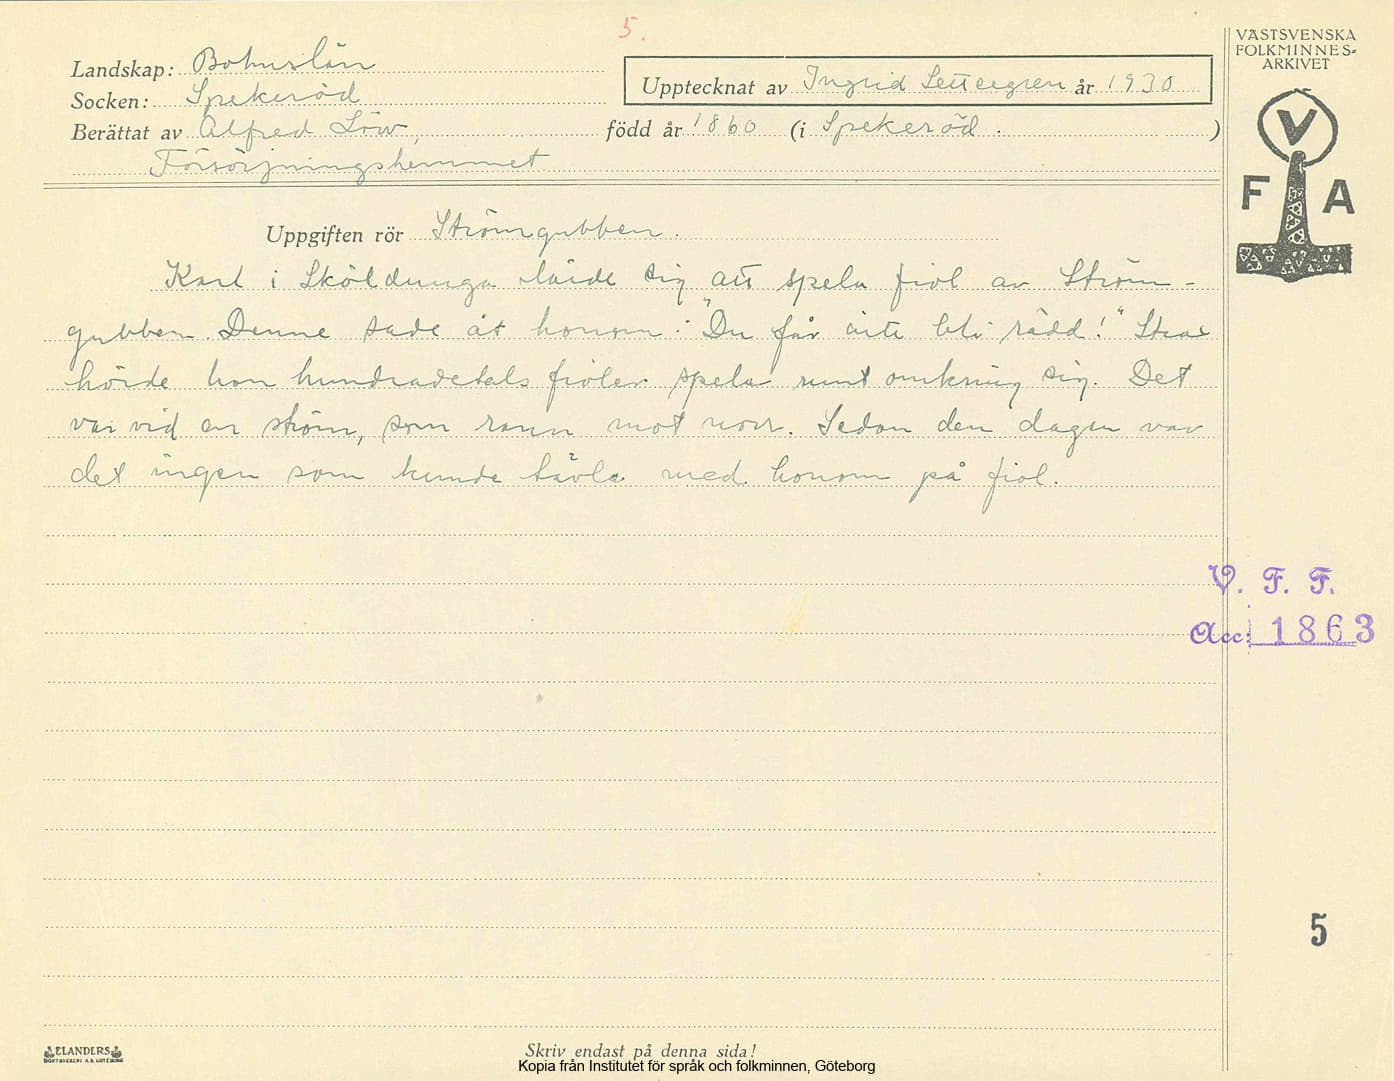 5.
VÄSTSVENSKA
FOLKMINNES-
ARKIVET
V
F A
Landskap: Bohuslän
Upptecknat av Ingrid Settergren år 1930
Socken: Spekeröd
Berättat av Alfred Löw, född år 1860 (i Spekeröd. )
Försörjningshemmet
Uppgiften rör Strömgubben.
Karl i Sköldunga lärde sig att spela fiol av Ström-
gubben. Denne sade åt honom: "Du får inte bli rädd!" Strax
hörde han hundradetals fioler spela runt omkring sig. Det
var vid en ström, som rann mot norr. Sedan den dagen var
det ingen som kunde tävla med honom på fiol.
V. F. F.
Acc: 1863
5
ELANDERS
BOKTRYCKERI A.B. GÖTEBORG
Skriv endast på denna sida!
Kopia från Institutet för språk och folkminnen, Göteborg